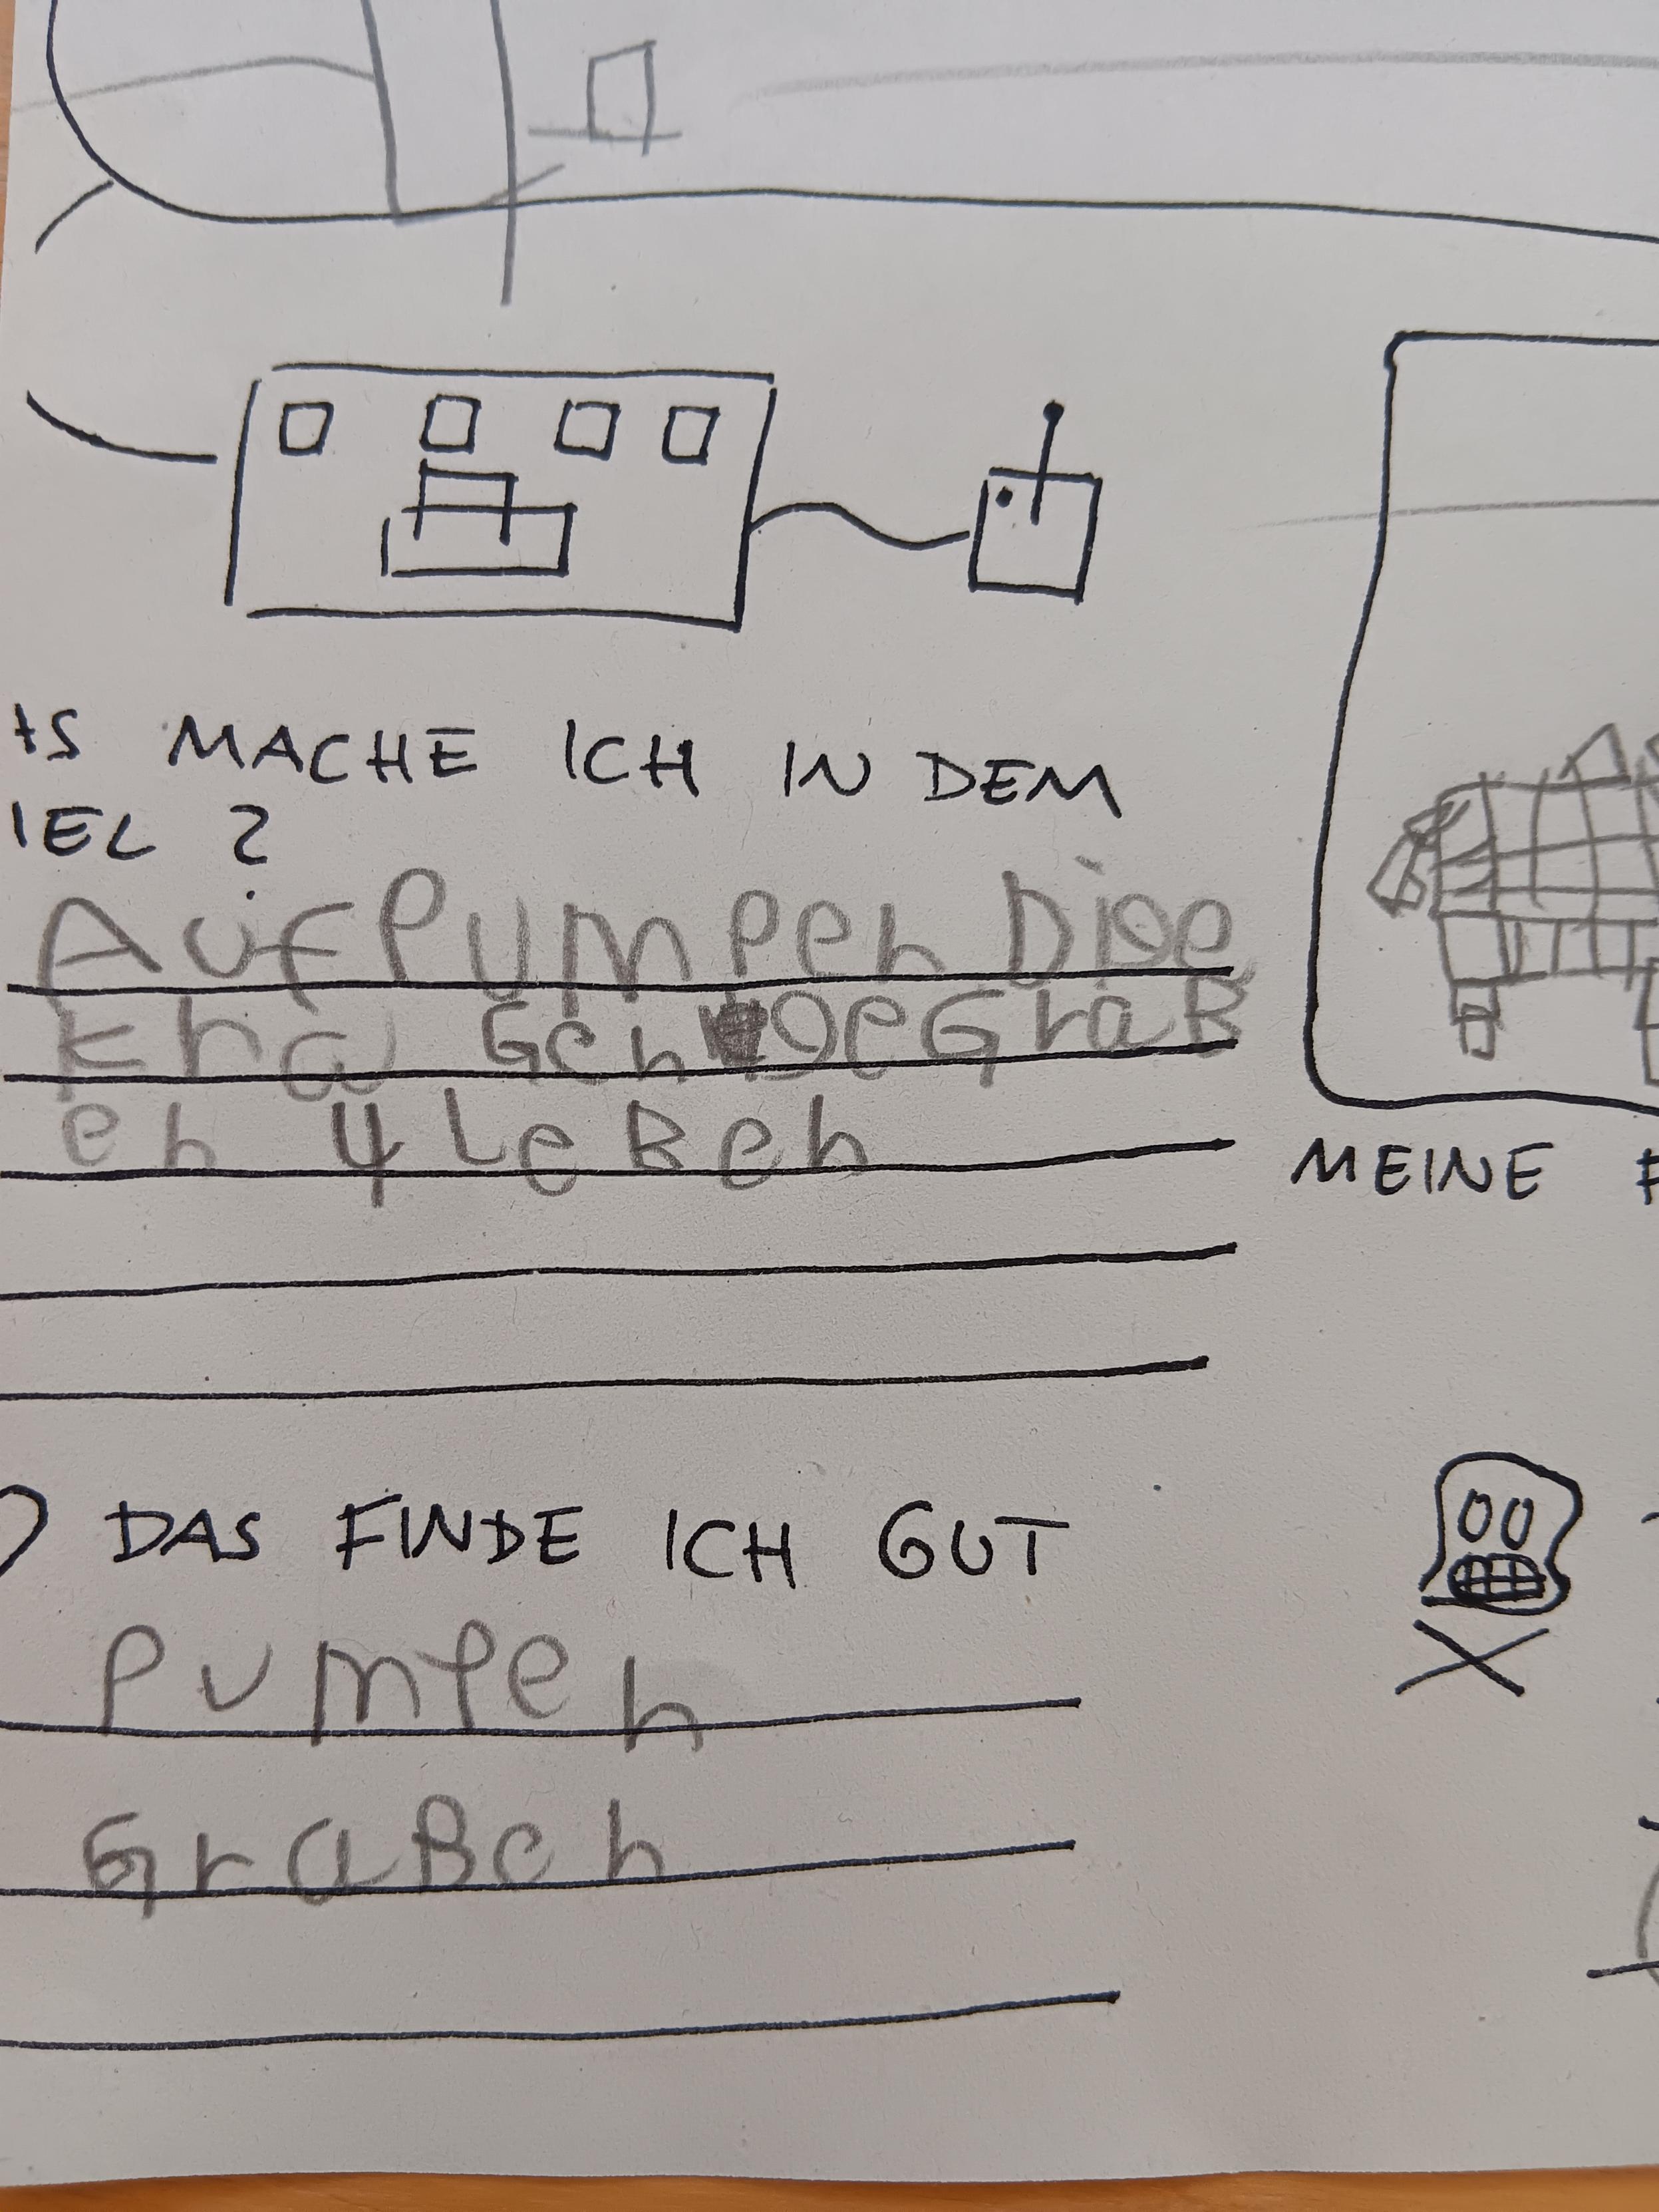 AS MACHE ICH IN DEM
IEL ?
AUfPUmpen Die
Kra Gen GeGraB
en 4 LeBen
MEINE F
DAS FINDE ICH GUT
PUmPen
GraBen